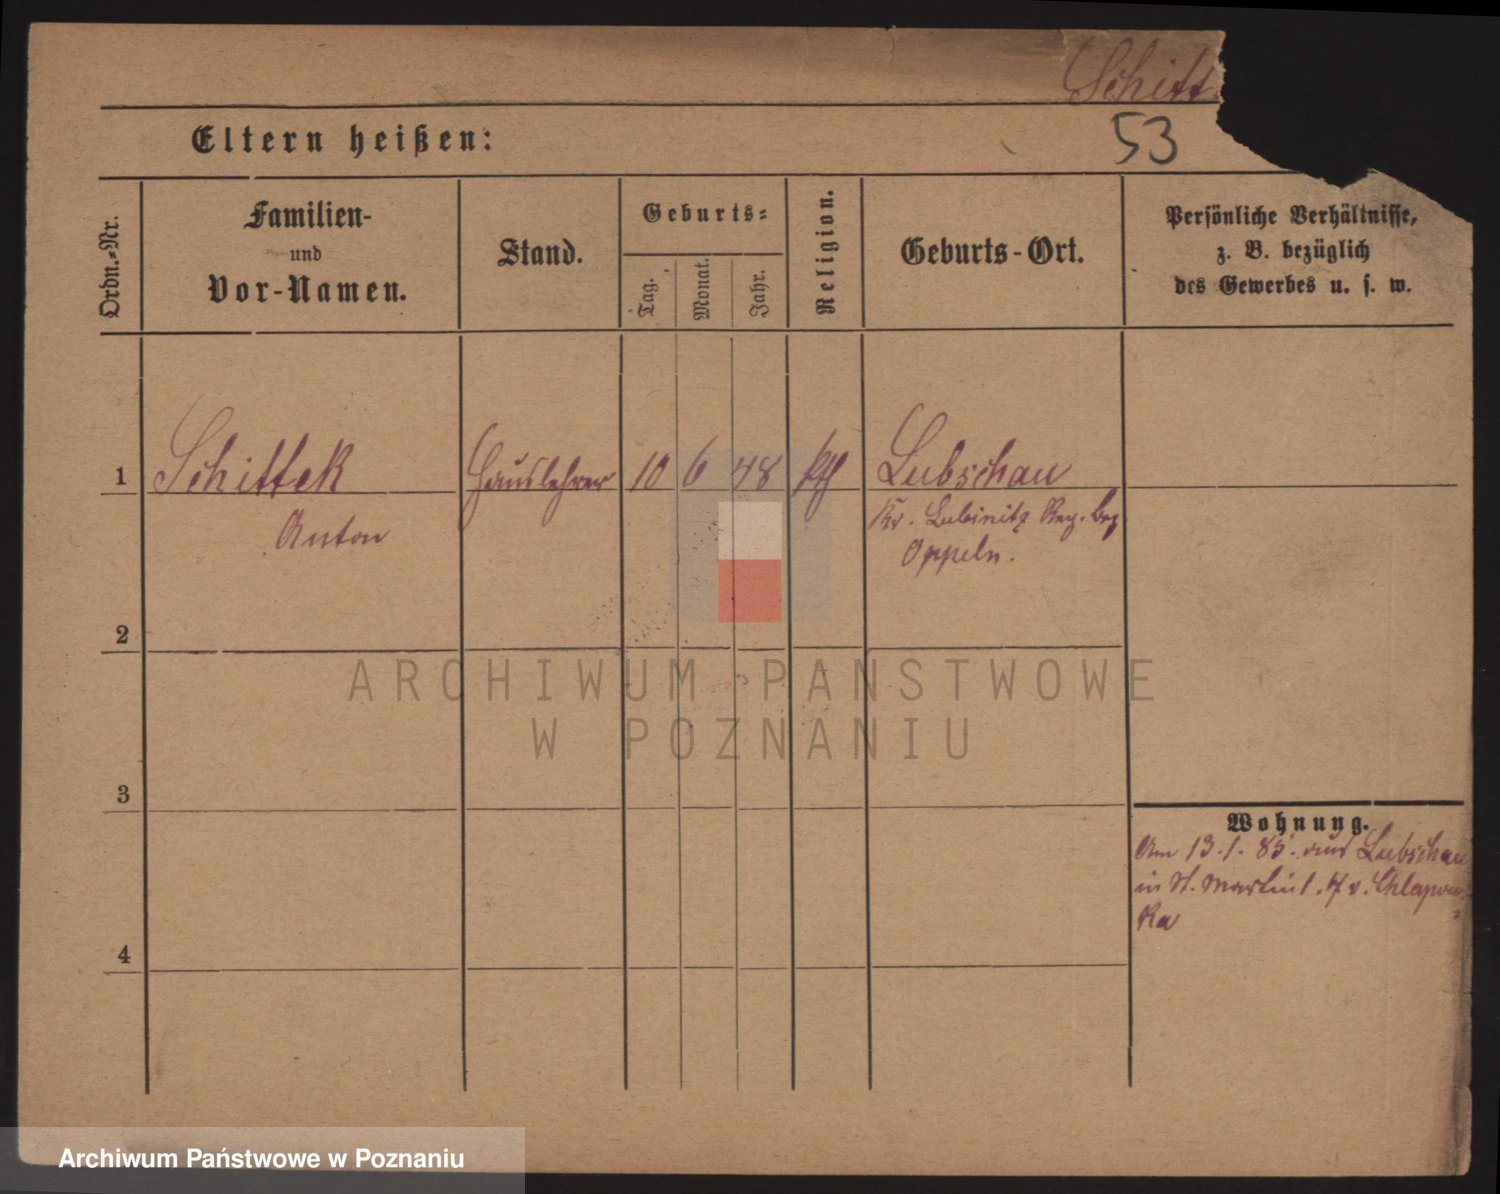 Schitt
Eltern heißen:
53
Ordn.-Nr.
Familien-
und
Vor-Namen.
Stand.
Geburts-
Tag.
Monat.
Jahr.
Religion.
Geburts-Ort.
Persönliche Verhältnisse,
z. B. bezüglich
des Gewerbes u. s. w.
1
Schittek
Anton
Hauslehrer
10
6
48
kth
Lubschau
Kr. Lubinitz Reg. Bez
Oppeln.
2
3
4
Wohnung.
Am 13.1. 85. aus Lubschau
in St. Martin 1. 47 v. Chlapows-
ka
ARCHIWUM PANSTWOWE
W POZNANIU
Archiwum Państwowe w Poznaniu